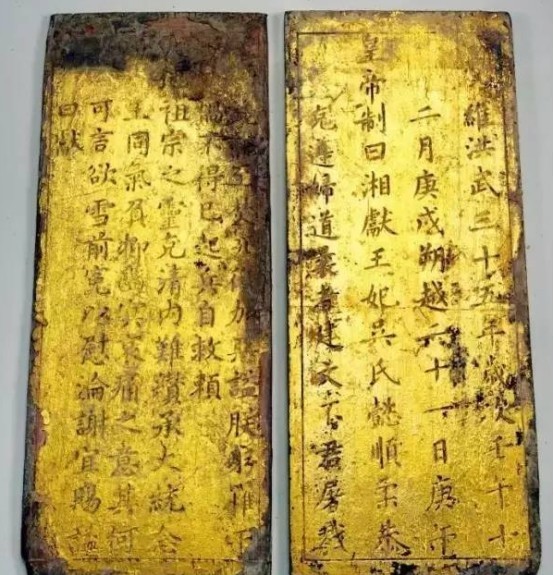 維洪武三十五年歲次壬午十
二月庚戌朔越六十一日庚申
皇帝制曰湘獻王妃吳氏懿順柔恭
克遵婦道曩者建文不君屠戮
加惡謚朕
禍不得已起兵自救賴
祖宗之靈克清內難纘承大統念
王同氣負哀痛之意其何
可言欲雪前冤以慰淪謝宜賜謚
曰獻